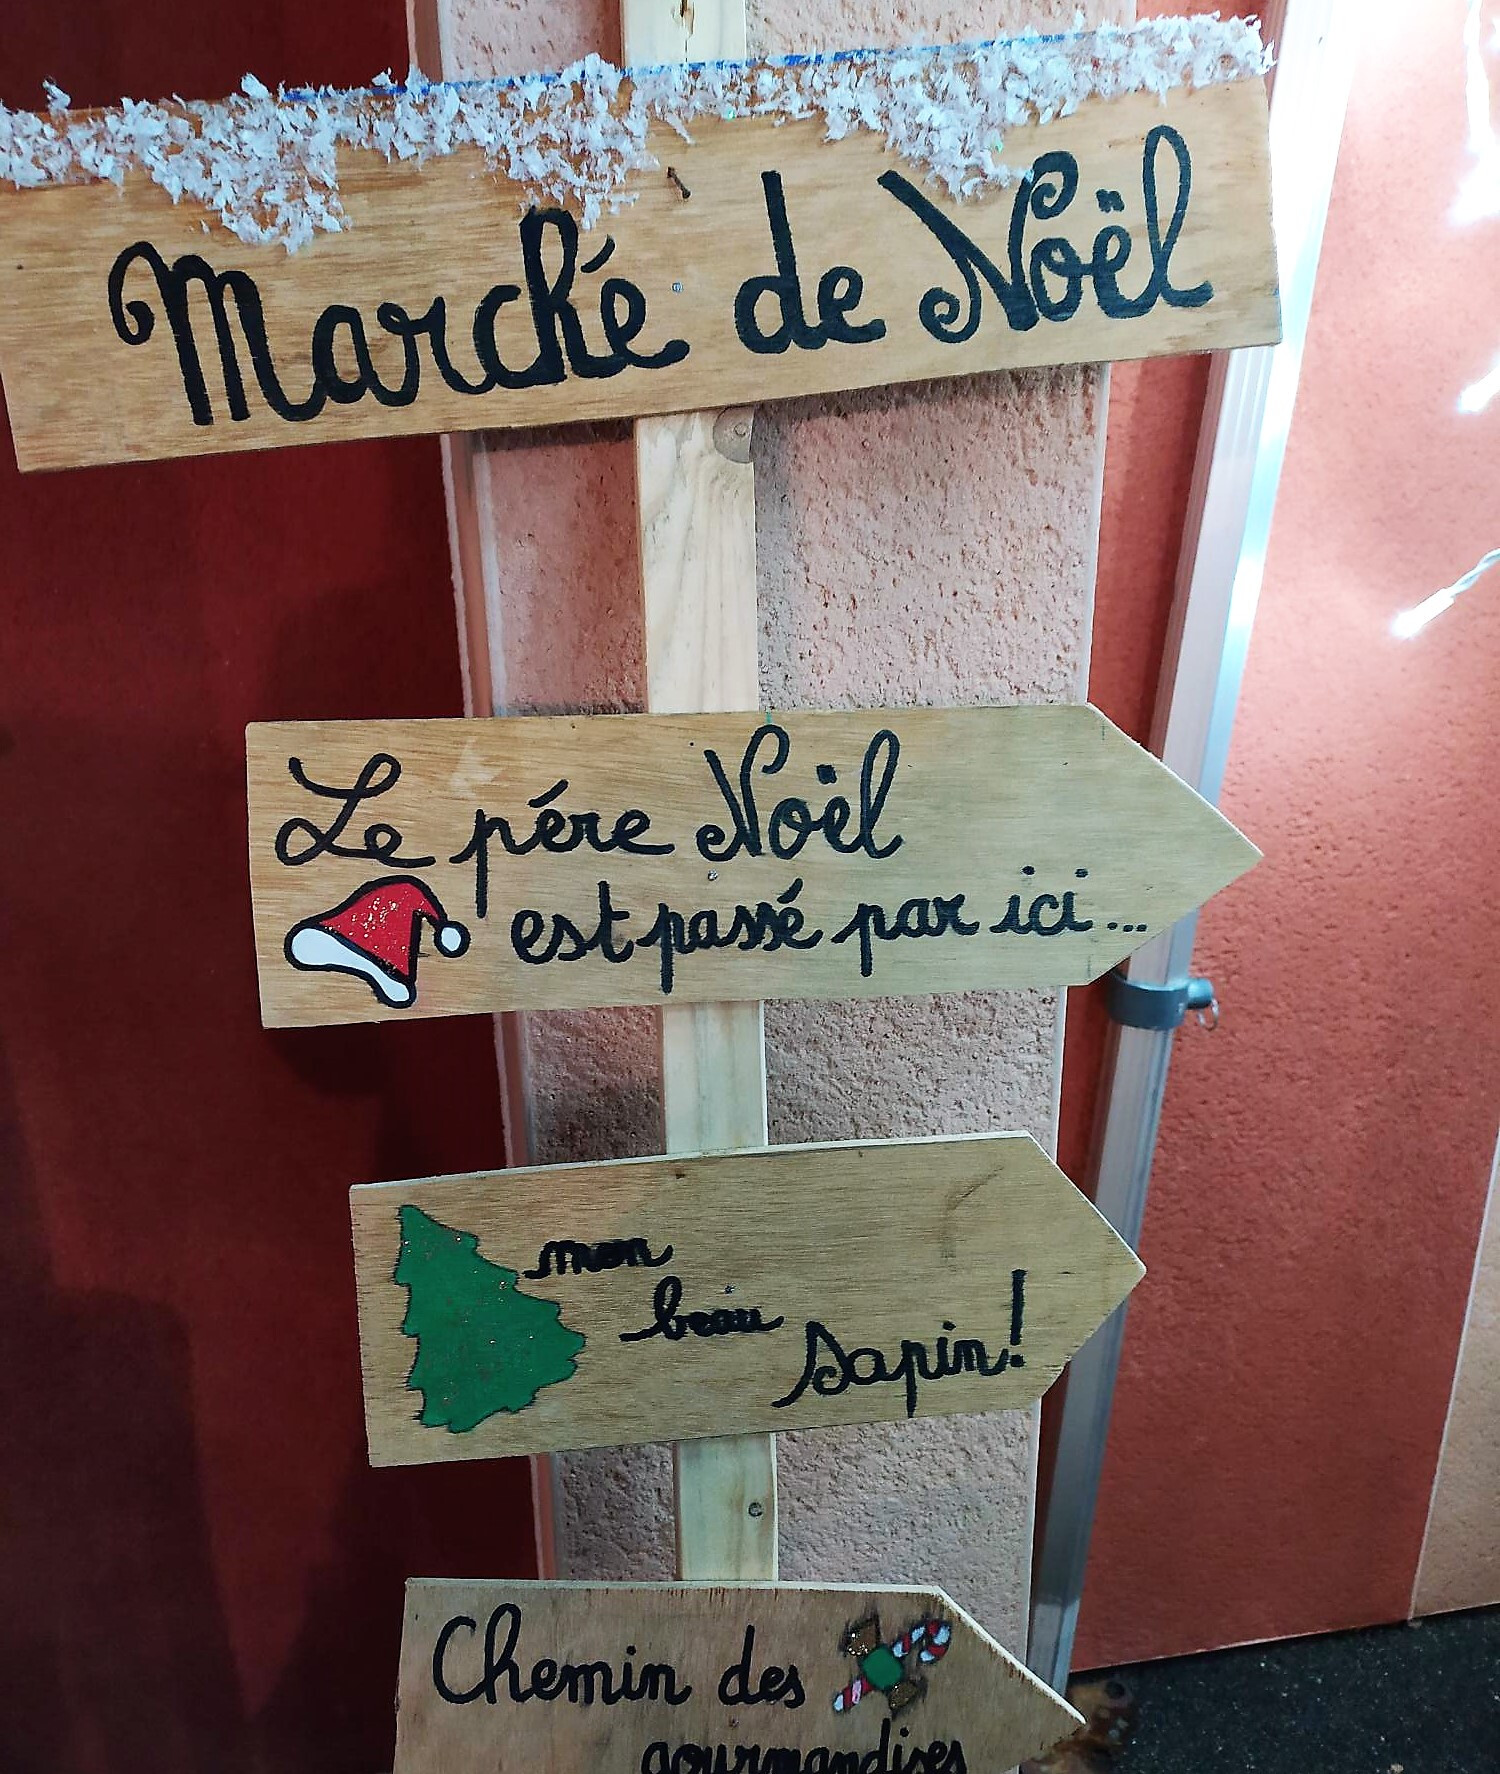 Marché de Noël
Le pére Noël
est passé par ici...
mon
beau
sapin!
Chemin des
gourmandises